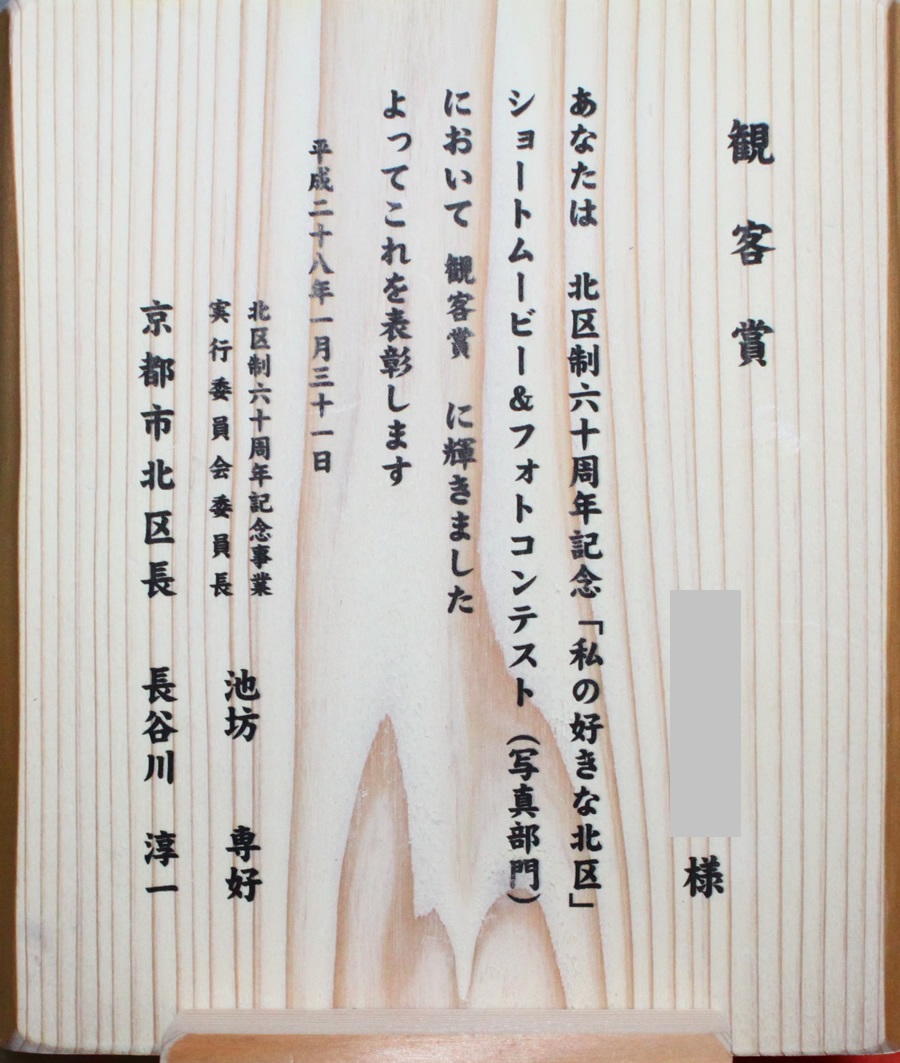 観客賞
様
あなたは　北区制六十周年記念「私の好きな北区」
ショートムービー＆フォトコンテスト（写真部門）
において　観客賞　に輝きました
よってこれを表彰します
平成二十八年一月三十一日
北区制六十周年記念事業
実行委員会委員長
池坊　専好
京都市北区長　長谷川　淳一